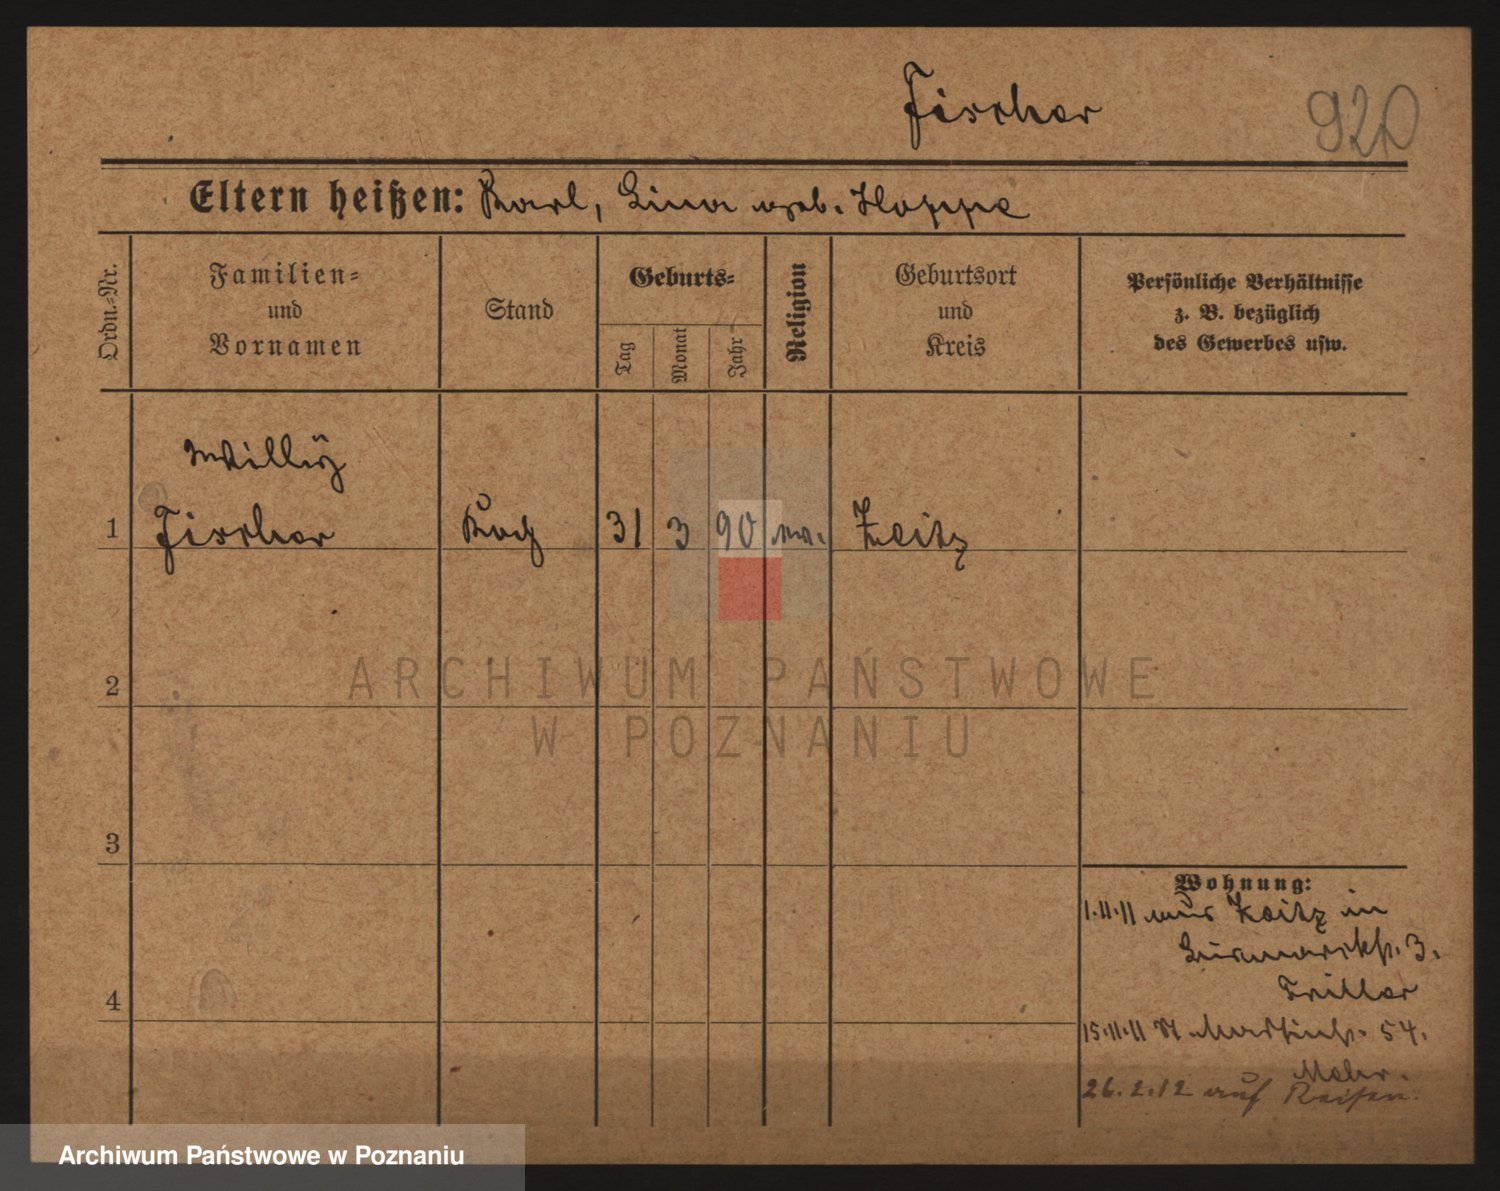 Fischer
920
Eltern heißen: Karl, Lina geb. Hoppe
Ordn.-Nr.
Familien-
und
Vornamen
Stand
Geburts-
Tag
Monat
Jahr
Religion
Geburtsort
und
Kreis
Persönliche Verhältnisse
z. B. bezüglich
des Gewerbes usw.
Willÿ
1 Fischer Koch 31 3 90 ev. Zeitz
2
3
4
Wohnung:
1.11.11 aus Zeitz in
3.
15.11.11 St Martinstr. 54.
26.2.12 auf Reisen.
ARCHIWUM PAŃSTWOWE
W POZNANIU
Archiwum Państwowe w Poznaniu